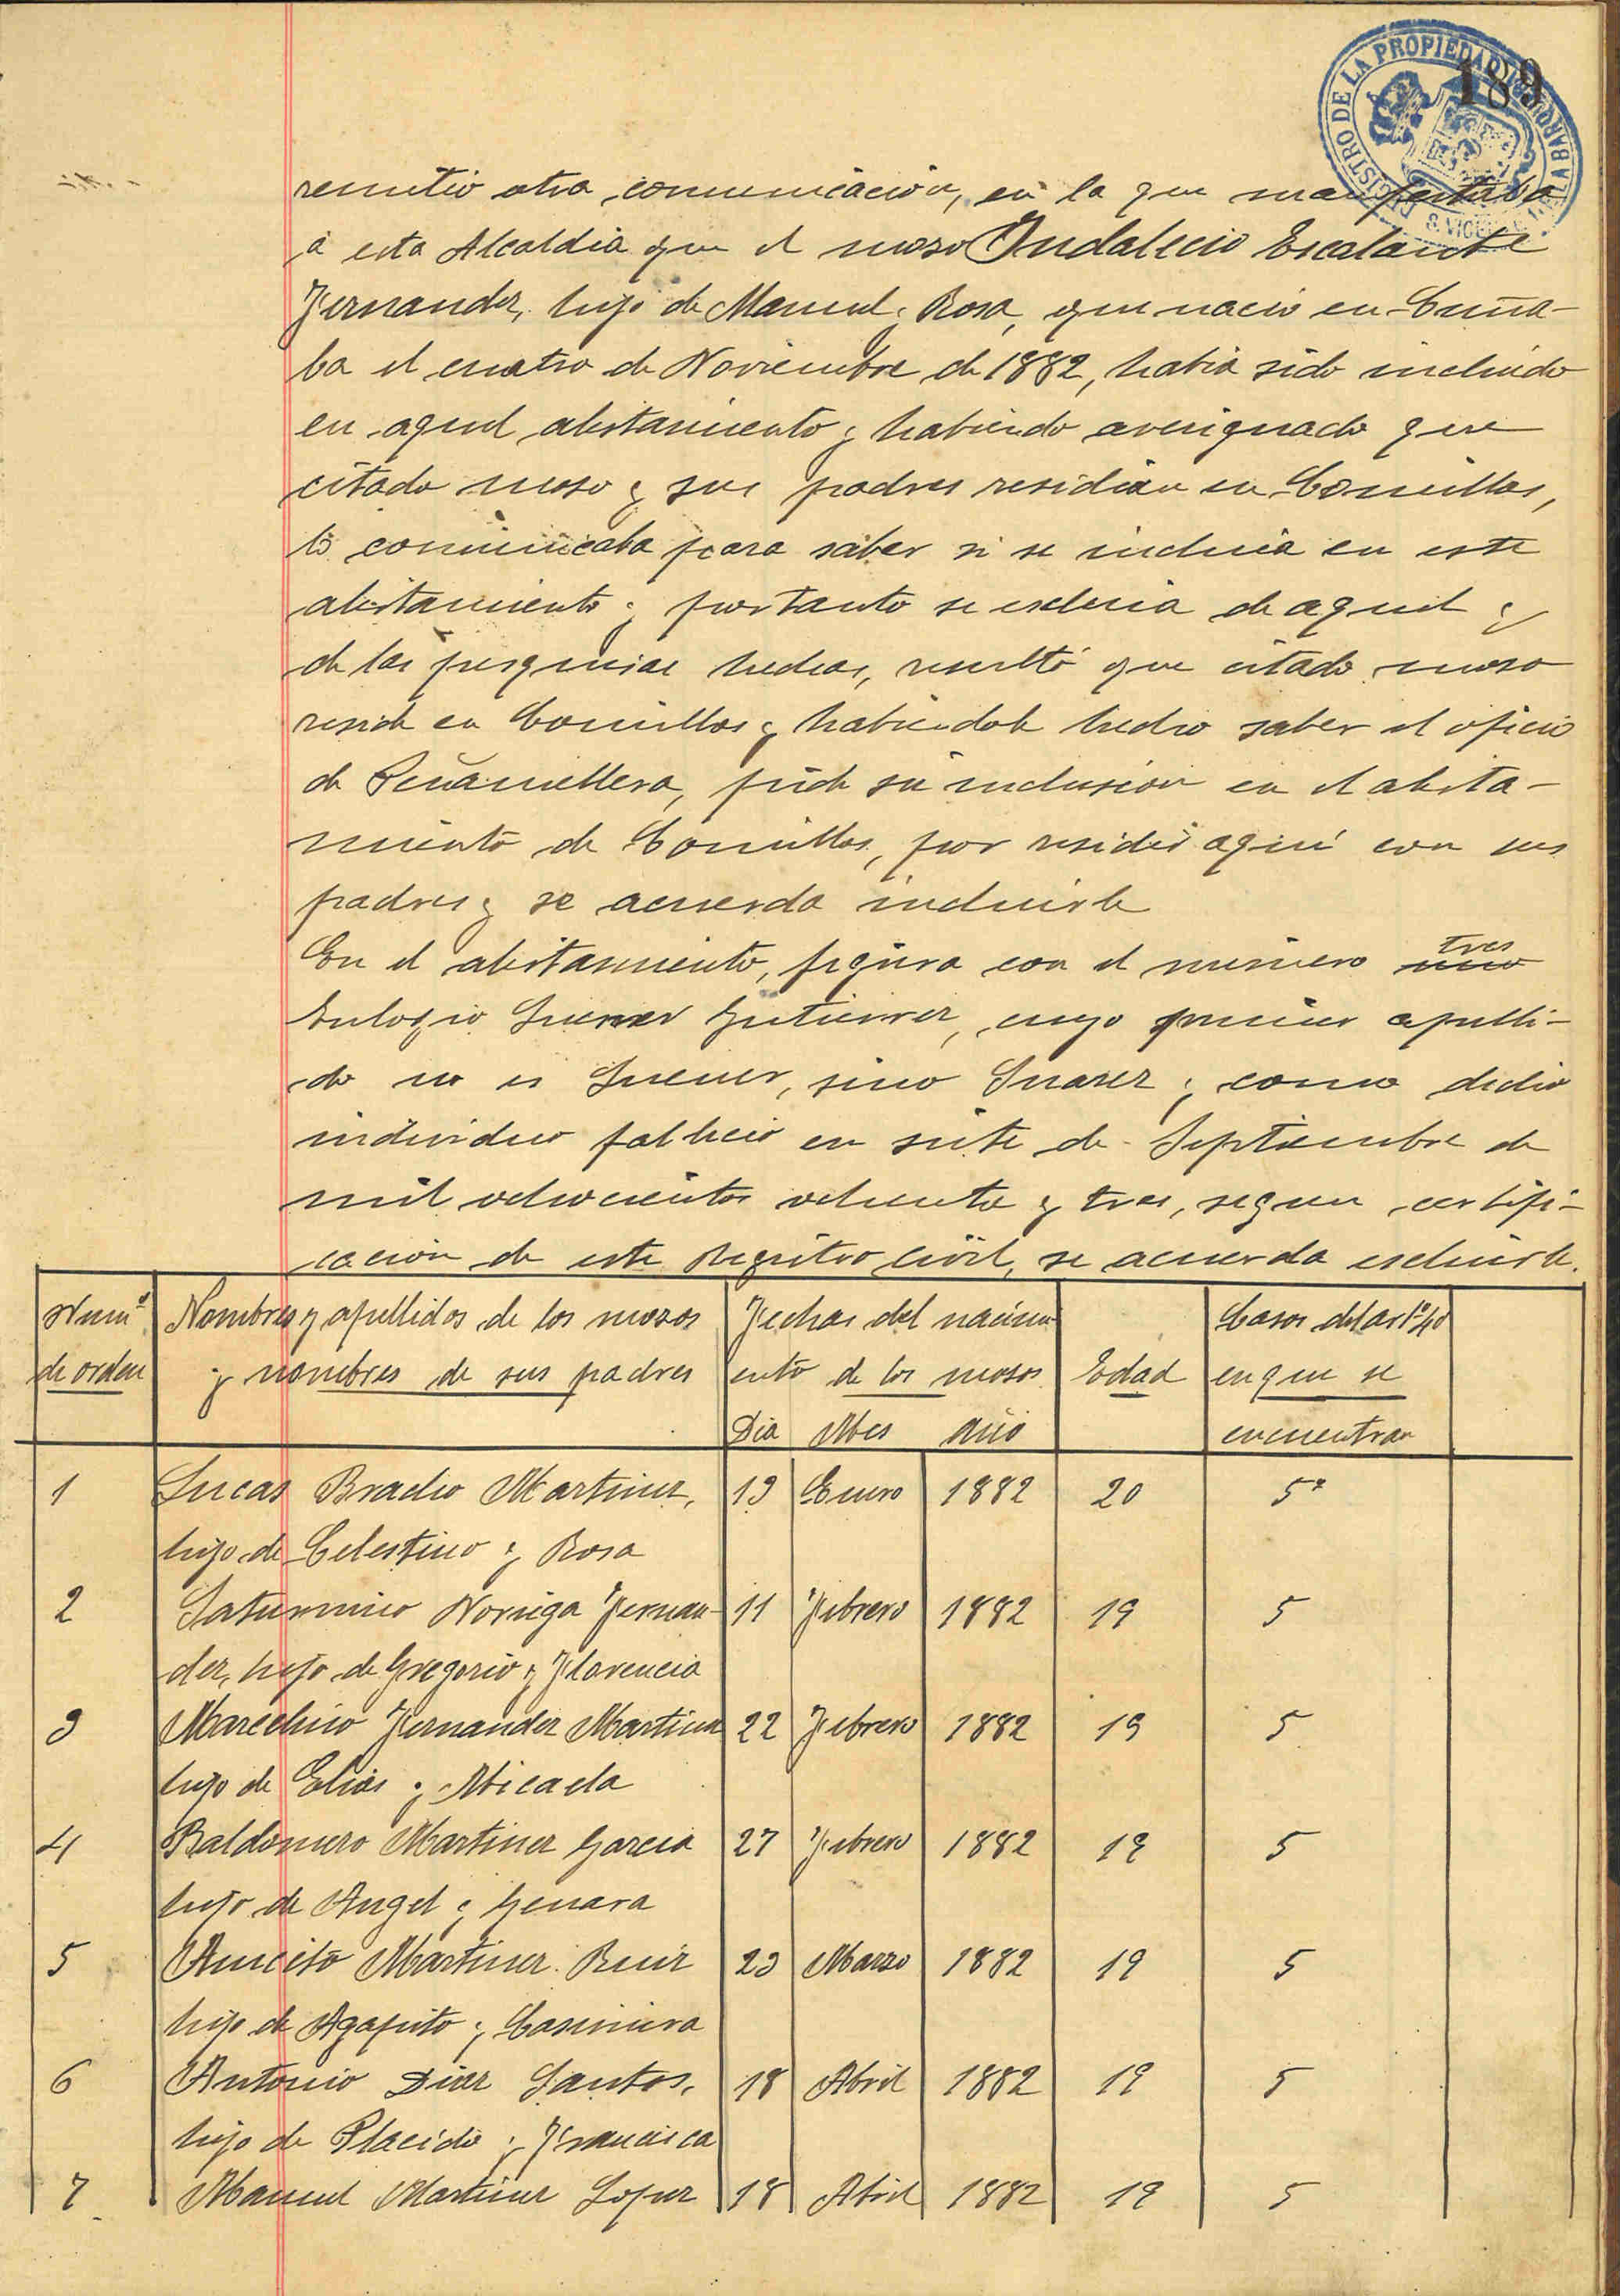 189
REGISTRO DE LA PROPIEDAD
remitio otra comunicacion, en la que manifestaba
á esta Alcaldia que el moso Indalecio Escalante
Fernandez, hijo de Manuel y Rosa, que nacio en Cuña-
ba el cuatro de Noviembre de 1882, habia sido incluido
en aquel alistamiento y habiendo averiguado que
citado moso y sus padres residian en Comillas,
lo comunicaba para saber si se incluia en este
alistamiento y por tanto se escluia de aquel y
de las pesquisas hechas, resultó que citado moso
reside en Comillas y habiendole hecho saber el oficio
de Peñamellera, pide su inclusion en el alista-
miento de Comillas, por residir aquí con sus
padres y se acuerda incluirle
En el alistamiento, figura con el numero uno tres
Eulogio Suener Gutierrez, cuyo primer apelli-
do no es Suener, sino Suarez y como dicho
individuo fallecio en siete de Septiembre de
mil ochocientos ochenta y tres, segun certifi-
cacion de este Registro civil, se acuerda escluirle.
Numº Nombres y apellidos de los mozos Fechas del nacimi- Casos del artº 40
de orden y nombres de sus padres ento de los mosos Edad en que se
Dia Mes Año encuentran
1 Lucas Bracho Martinez, 13 Enero 1882 20 5º
hijo de Celestino y Rosa
2 Saturnino Noriega Fernan- 11 Febrero 1882 19 5
dez, hijo de Gregorio y Florencia
3 Marcelino Fernandez Martinez 22 Febrero 1882 19 5
hijo de Elias y Micaela
4 Baldomero Martinez Garcia 27 Febrero 1882 19 5
hijo de Angel y Genara
5 Aniceto Martinez Ruiz 23 Marzo 1882 19 5
hijo de Agapito y Casimira
6 Antonio Diaz Santos, 18 Abril 1882 19 5
hijo de Placido y Francisca
7 Manuel Martinez Lopez 18 Abril 1882 19 5